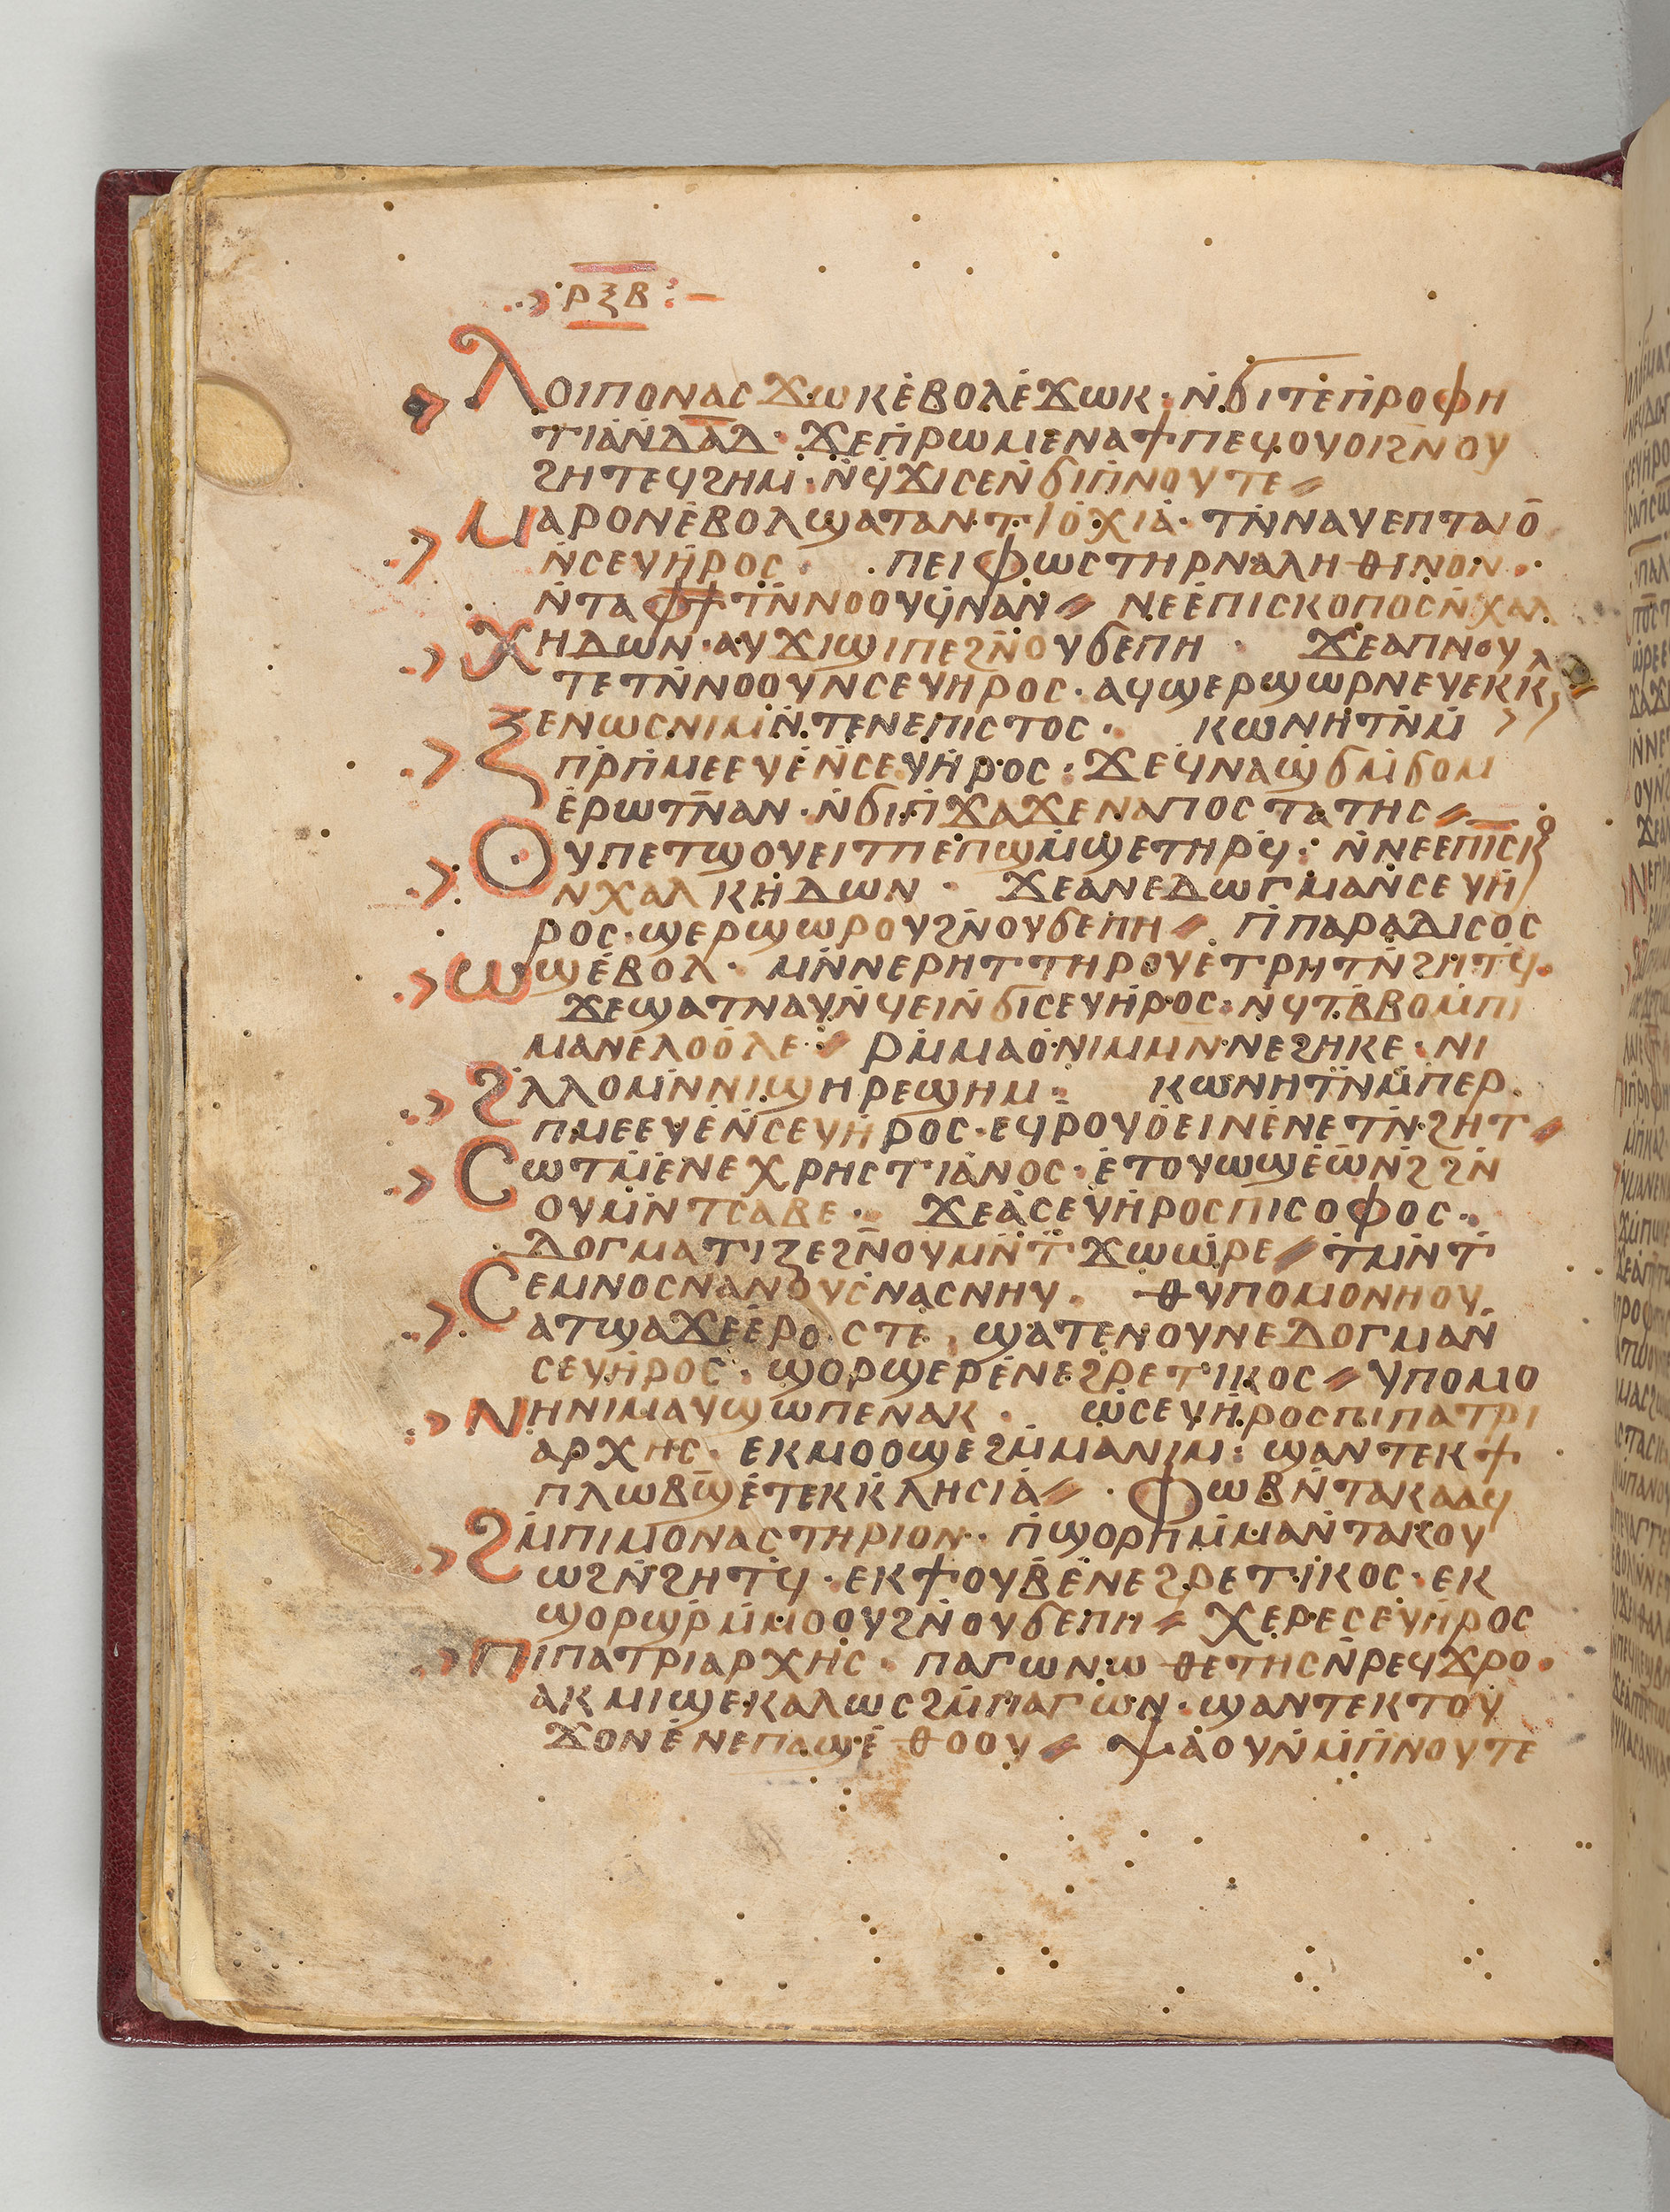 ⲣⲝⲃ
ⲗⲟⲓⲡⲟⲛⲁⲥϫⲱⲕⲉⲃⲟⲗⲉϫⲱⲕ· ⲛϭⲓⲧⲉⲡⲣⲟⲫⲏ
ⲧⲓⲁⲛⲇⲁⲇ· ϫⲉⲡⲣⲱⲙⲉⲛⲁϯⲡⲉϥⲟⲩⲟⲓϩⲛⲟⲩ
ϩⲏⲧⲉϥϩⲏⲙ· ⲛϥϫⲓⲥⲉⲛϭⲓⲡⲛⲟⲩⲧⲉ⸗
ⲙⲁⲣⲟⲛⲉⲃⲟⲗϣⲁⲧⲁⲛⲧⲓⲟⲭⲓⲁ· ⲧⲛⲛⲁⲩⲉⲡⲧⲁⲓⲟ̄
ⲛⲥⲉⲩⲏⲣⲟⲥ· ⲡⲉⲓⲫⲱⲥⲧⲏⲣⲛⲁⲗⲏⲑⲓⲛⲟⲛ·
ⲛⲧⲁⲫϯⲧⲛⲛⲟⲟⲩϥⲛⲁⲛ⸗ ⲛⲉⲉⲡⲓⲥⲕⲟⲡⲟⲥⲛⲭⲁⲗ
ⲭⲏⲇⲱⲛ· ⲁⲩϫⲓϣⲓⲡⲉϩⲛⲟⲩϭⲉⲡⲏ· ϫⲉⲁⲡⲛⲟⲩ
ⲧⲉⲧⲛⲛⲟⲟⲩⲛⲥⲉⲩⲏⲣⲟⲥ· ⲁϥϣⲉⲣϣⲱⲣⲛⲉⲩⲉⲕⲕⲗ
ⲝⲉⲛⲱⲥⲛⲓⲙⲛⲧⲉⲛⲉⲡⲓⲥⲧⲟⲥ· ⲕⲱⲛⲏⲧⲛⲙ
ⲡⲣⲡⲙⲉⲉⲩⲉⲛⲥⲉⲩⲏⲣⲟⲥ· ϫⲉϥⲛⲁϣϭⲙϭⲟⲙ
ⲉⲣⲱⲧⲛⲁⲛ· ⲛϭⲓⲡϫⲁϫⲉⲛⲁⲡⲟⲥⲧⲁⲧⲏⲥ⸗
ⲟⲩⲡⲉⲧϣⲟⲩⲉⲓⲧⲡⲉⲡϣⲙϣⲉⲧⲏⲣϥ· ⲛⲛⲉⲉⲡⲓⲥⲕⲟ
ⲛⲭⲁⲗⲕⲏⲇⲱⲛ· ϫⲉⲁⲛⲉⲇⲱⲅⲙⲁⲛⲥⲉⲩⲏ
ⲣⲟⲥ· ϣⲉⲣϣⲱⲣⲟⲩϩⲛⲟⲩϭⲉⲡⲏ⸗ ⲡⲡⲁⲣⲁⲇⲓⲥⲟⲥ
ⲱϣⲉⲃⲟⲗ· ⲙⲛⲛⲉⲣⲏⲧⲧⲏⲣⲟⲩⲉⲧⲣⲏⲧⲛϩⲏⲧϥ·
ϫⲉϣⲁⲧⲛⲁⲩⲛϥⲉⲓⲛϭⲓⲥⲉⲩⲏⲣⲟⲥ· ⲛϥⲧⲃⲃⲟⲙⲡⲓ
ⲙⲁⲛⲉⲗⲟⲟⲗⲉ⸗ ⲣⲙⲙⲁⲟⲛⲓⲙⲙⲛⲛⲉϩⲏⲕⲉ· ⲛⲓ
ϩⲗⲗⲟⲙⲛⲛⲓϣⲏⲣⲉϣⲏⲙ· ⲕⲱⲛⲏⲧⲛⲙⲡⲉⲣ
ⲡⲙⲉⲉⲩⲉⲛⲥⲉⲩⲏⲣⲟⲥ· ⲉϥⲣⲟⲩⲟⲉⲓⲛⲉⲛⲉⲧⲛϩⲏⲧ⸗
ⲥⲱⲧⲙⲉⲛⲉⲭⲣⲏⲥⲧⲓⲁⲛⲟⲥ· ⲉⲧⲟⲩⲱϣⲉⲱⲛϩϩⲛ
ⲟⲩⲙⲛⲧⲥⲁⲃⲉ· ϫⲉⲁⲥⲉⲩⲏⲣⲟⲥⲡⲓⲥⲟⲫⲟⲥ·
ⲇⲟⲅⲙⲁⲧⲓⲍⲉϩⲛⲟⲩⲙⲛⲧϫⲱⲱⲣⲉ⸗ ⲧⲙⲛⲧ
ⲥⲉⲙⲛⲟⲥⲛⲁⲛⲟⲩⲥⲛⲁⲥⲛⲏⲩ· ⲑⲩⲡⲟⲙⲟⲛⲏⲟⲩ
ⲁⲧϣⲁϫⲉⲉⲣⲟⲥⲧⲉ· ϣⲁⲧⲉⲛⲟⲩⲛⲉⲇⲟⲅⲙⲁⲛ
ⲥⲉⲩⲏⲣⲟⲥ· ϣⲟⲣϣⲉⲣⲉⲛⲉϩⲣⲉⲧⲓⲕⲟⲥ⸗ ⲩⲡⲟⲙⲟ
ⲛⲏⲛⲓⲙⲁⲩϣⲱⲡⲉⲛⲁⲕ· ⲱⲥⲉⲩⲏⲣⲟⲥⲡⲓⲡⲁⲧⲣⲓ
ⲁⲣⲭⲏⲥ· ⲉⲕⲙⲟⲟϣⲉϩⲙⲙⲁⲛⲓⲙ· ϣⲁⲛⲧⲉⲕϯ
ⲡⲗⲱⲃϣⲉⲧⲉⲕⲕⲗⲏⲥⲓⲁ⸗ ⲫⲱⲃⲛⲧⲁⲕⲁⲁϥ
ϩⲙⲡⲓⲙⲟⲛⲁⲥⲧⲏⲣⲓⲟⲛ· ⲡϣⲟⲣⲡⲙⲙⲁⲛⲧⲁⲕⲟⲩ
ⲱϩⲛϩⲏⲧϥ· ⲉⲕϯⲟⲩⲃⲉⲛⲉϩⲣⲉⲧⲓⲕⲟⲥ· ⲉⲕ
ϣⲟⲣϣⲣⲙⲙⲟⲟⲩϩⲛⲟⲩϭⲉⲡⲏ⸗ ⲭⲉⲣⲉⲥⲉⲩⲏⲣⲟⲥ
ⲡⲓⲡⲁⲧⲣⲓⲁⲣⲭⲏⲥ· ⲡⲁⲅⲱⲛⲱⲑⲉⲧⲏⲥⲛⲣⲉϥϫⲣⲟ·
ⲁⲕⲙⲓϣⲉⲕⲁⲗⲱⲥϩⲙⲡⲁⲅⲱⲛ· ϣⲁⲛⲧⲉⲕⲧⲟⲩ
ϫⲟⲛⲉⲛⲉⲡⲁϣⲉⲑⲟⲟⲩ⸗ ⲯⲁⲟⲩⲛⲙⲡⲛⲟⲩⲧⲉ